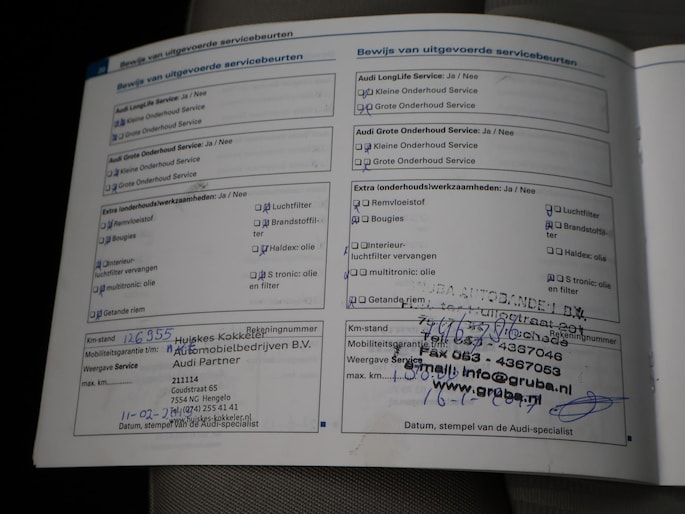 Bewijs van uitgevoerde servicebeurten
Bewijs van uitgevoerde servicebeurten
Audi LongLife Service: Ja / Nee
Kleine Onderhoud Service
Grote Onderhoud Service
Audi Grote Onderhoud Service: Ja / Nee
Kleine Onderhoud Service
Grote Onderhoud Service
Extra (onderhouds)werkzaamheden: Ja / Nee
Remvloeistof
Bougies
Interieur-
luchtfilter vervangen
multitronic: olie
Getande riem
Luchtfilter
Brandstoffil-
ter
Haldex: olie
S tronic: olie
en filter
Km-stand 126955 Rekeningnummer
Mobiliteitsgarantie t/m:
Weergave Service
max. km
Huiskes Kokkeler
Automobielbedrijven B.V.
Audi Partner
211114
Goudstraat 65
7554 NG Hengelo
Tel. (074) 255 41 41
www.huiskes-kokkeler.nl
Datum, stempel van de Audi-specialist
Bewijs van uitgevoerde servicebeurten
Audi LongLife Service: Ja / Nee
Kleine Onderhoud Service
Grote Onderhoud Service
Audi Grote Onderhoud Service: Ja / Nee
Kleine Onderhoud Service
Grote Onderhoud Service
Extra (onderhouds)werkzaamheden: Ja / Nee
Remvloeistof
Bougies
Interieur-
luchtfilter vervangen
multitronic: olie
Getande riem
Luchtfilter
Brandstoffil-
ter
Haldex: olie
S tronic: olie
en filter
Km-stand Rekeningnummer
Mobiliteitsgarantie t/m:
Weergave Service
max. km
B.V.
Tel. 053 - 4367046
Fax 053 - 4367053
e-mail: info@gruba.nl
www.gruba.nl
Datum, stempel van de Audi-specialist